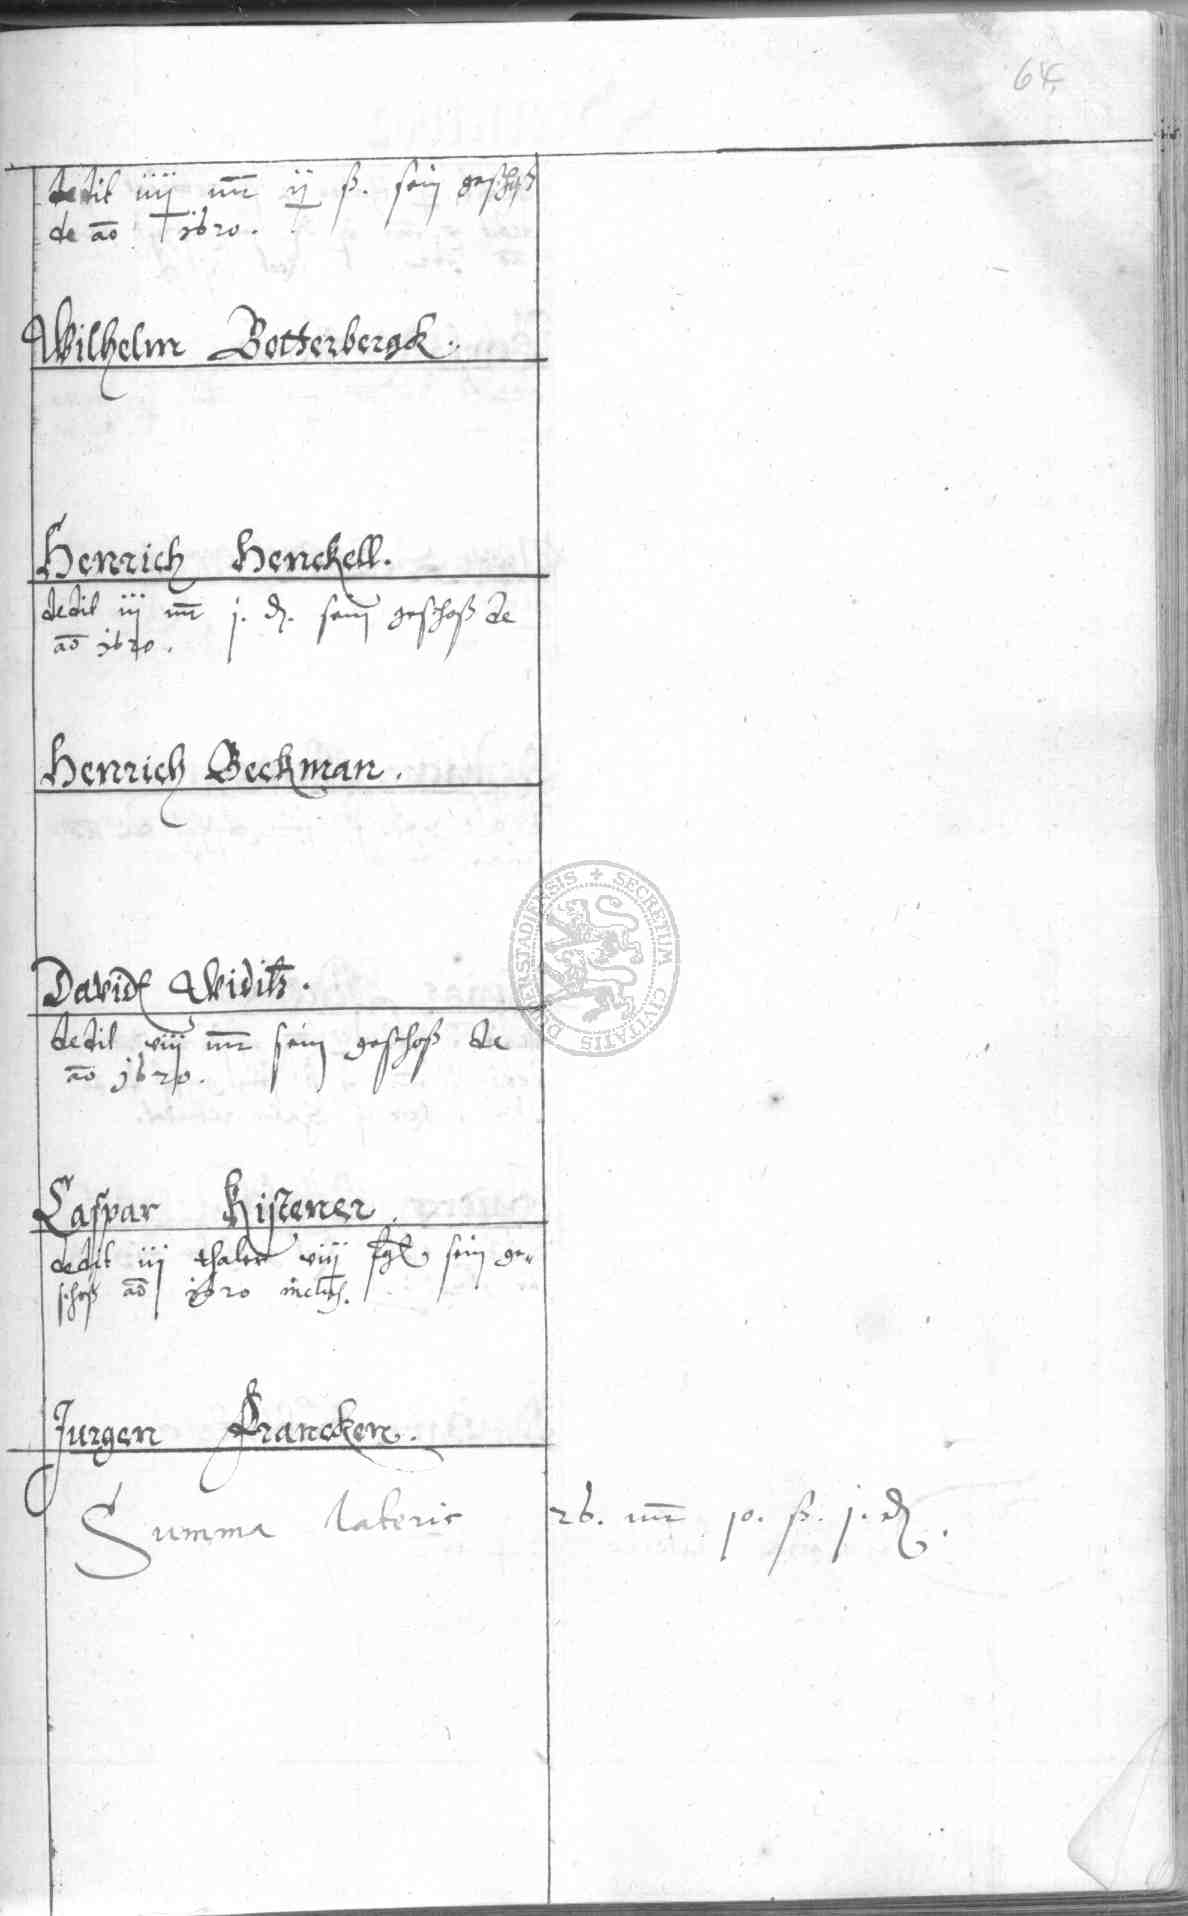 64
dedit iiij mr ij ß. sein geschoß
de ao 1620.
Wilhelm Botterbergk.
Henrich Henckell.
dedit iij mr j. d. sein geschoß de
ao 1620.
Henrich Beckman.
David Widitz.
dedit viij mr sein geschoß de
ao 1620.
Caspar Kistener.
dedit iij thaler viij sein ge-
schoß ao 1620
Jurgen Francken.
Summa lateris 26. mr 10. ß. j. d.
DUDERSTADIENSIS + SECRETUM CIVITATIS